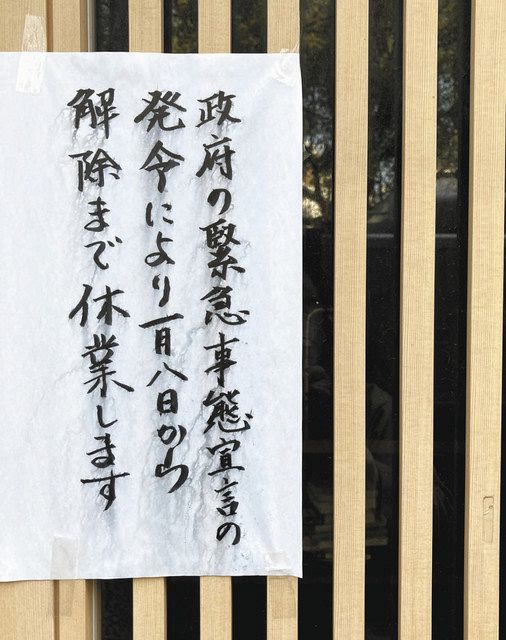 政府の緊急事態宣言の
発令により一月八日から
解除まで休業します